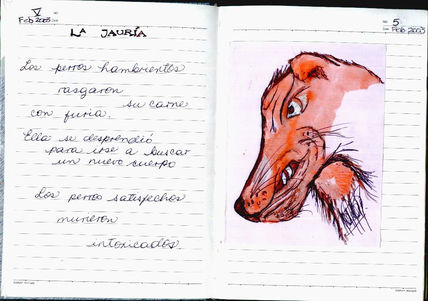 V
Feb 2003
LA JAURÍA
Los perros hambrientos
rasgaron
su carne
con furia.
Ella se desprendió
para irse a buscar
un nuevo cuerpo
Los perros satisfechos
murieron
intoxicados.
5
Feb 2003